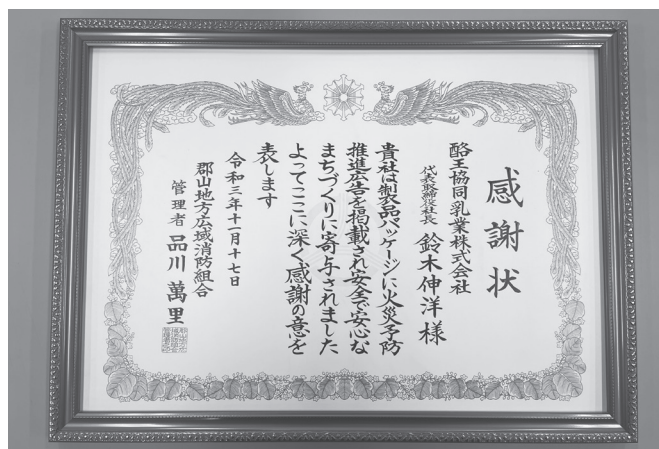 感謝状
酪王協同乳業株式会社
代表取締役社長 鈴木伸洋様
貴社は製品パッケージに火災予防
推進広告を掲載され安全で安心な
まちづくりに寄与されました
よってここに深く感謝の意を
表します
令和三年十一月十七日
郡山地方広域消防組合
管理者 品川萬里